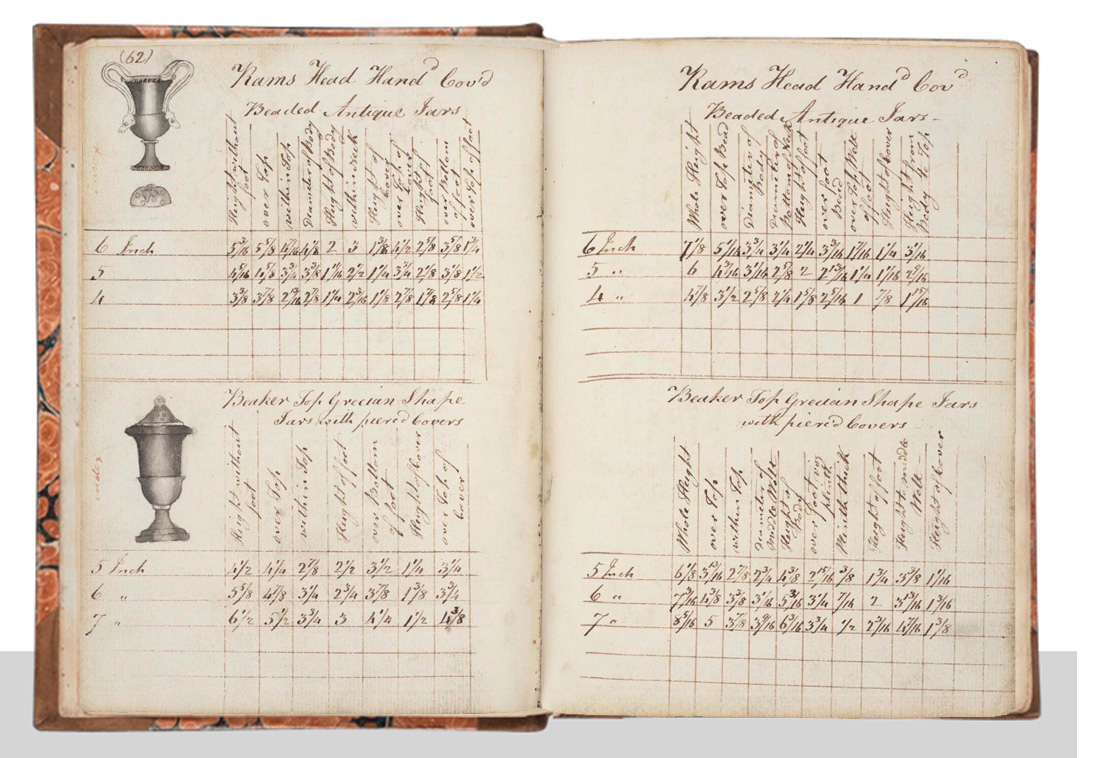 (62)
Rams Head Hand^d Cov'd
Beaded Antique Jars
Height without foot
over Top
within Top
Diameter of Body
Height of Body
within Neck
Height of Cover
over Top of Cover
Height of foot
over Bottom of foot
over Top of foot
6 Inch 5 3/16 5 5/8 2 3 1 3/8 4 1/2 1 3/4
5 4 5/8 3 3/4 3 3/8 2 1/2 1 1/4 3 3/4 2 1/8 3 1/8 1 1/2
4 3 3/8 3 7/8 2 7/8 1 1/4 2 3/16 1 1/8 2 7/8 1 7/8 2 5/8 1 1/4
index
Beaker Top Grecian Shape
Jars with pierc'd Covers
Height without foot
over Top
within Top
Height of foot
over Bottom of foot
Height of Cover
over Top of Cover
5 Inch 4 1/2 4 1/4 2 7/8 2 1/2 3 1/2 1 1/4 3 1/4
6 " 5 5/8 4 7/8 3 1/4 2 3/4 3 7/8 1 3/8 3 3/4
7 " 6 1/2 5 1/2 3 3/4 3 4 1/4 1 1/2 4 3/8
Rams Head Hand^d Cov^d
Beaded Antique Jars
Whole Height
over Top Bead
Diameter of Body
Diameter of Bottom of Neck
Height of foot
over foot Bead
over Top Welt of foot
Height of Cover
Height from Body to Top
6 Inch 7 7/8 5 1/16 3 3/4 3 1/4 2 1/4 3 3/16 1 7/16 1 1/4 3 1/16
5 " 6 4 3/16 3 1/16 2 5/8 2 2 13/16 1 1/4 1 1/16 2 5/16
4 " 4 7/8 3 1/2 2 5/8 2 1/4 1 5/8 2 5/16 1 7/8 1 15/16
Beaker Top Grecian Shape Jars
with pierc'd Covers
Whole Height
over Top
within Top
Diameter Middle Welt
Height of Body
over foot or plinth
thick
Height of foot
Height middle Welt
Height of Cover
5 Inch 6 7/8 3 13/16 2 7/8 2 3/4 4 3/8 2 15/16 3/8 1 3/4 3 3/8 1 1/16
6 " 7 9/16 4 3/8 3 3/8 3 1/8 5 3/16 3 1/4 7/16 2 3 13/16 1 3/16
7 " 8 5/16 5 3 7/8 3 9/16 6 3/16 3 3/4 1/2 2 3/16 4 7/16 1 3/8